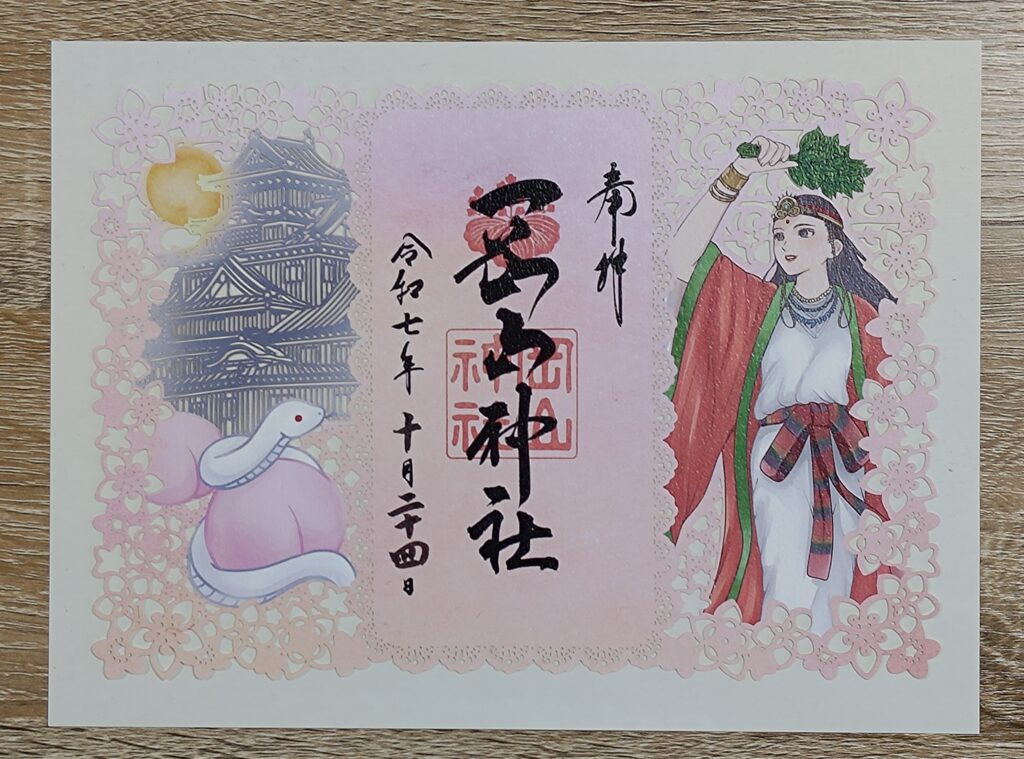 奉拝
岡山神社
岡山
神社
令和七年 十月二十四日